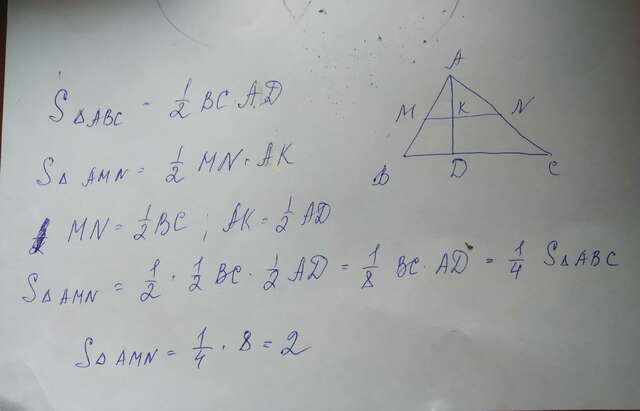 S△ABC = 1/2 BC AD
S△AMN = 1/2 MN · AK
MN = 1/2 BC ; AK = 1/2 AD
S△AMN = 1/2 · 1/2 BC · 1/2 AD = 1/8 BC · AD = 1/4 S△ABC
S△AMN = 1/4 · 8 = 2
A
M K N
B D C